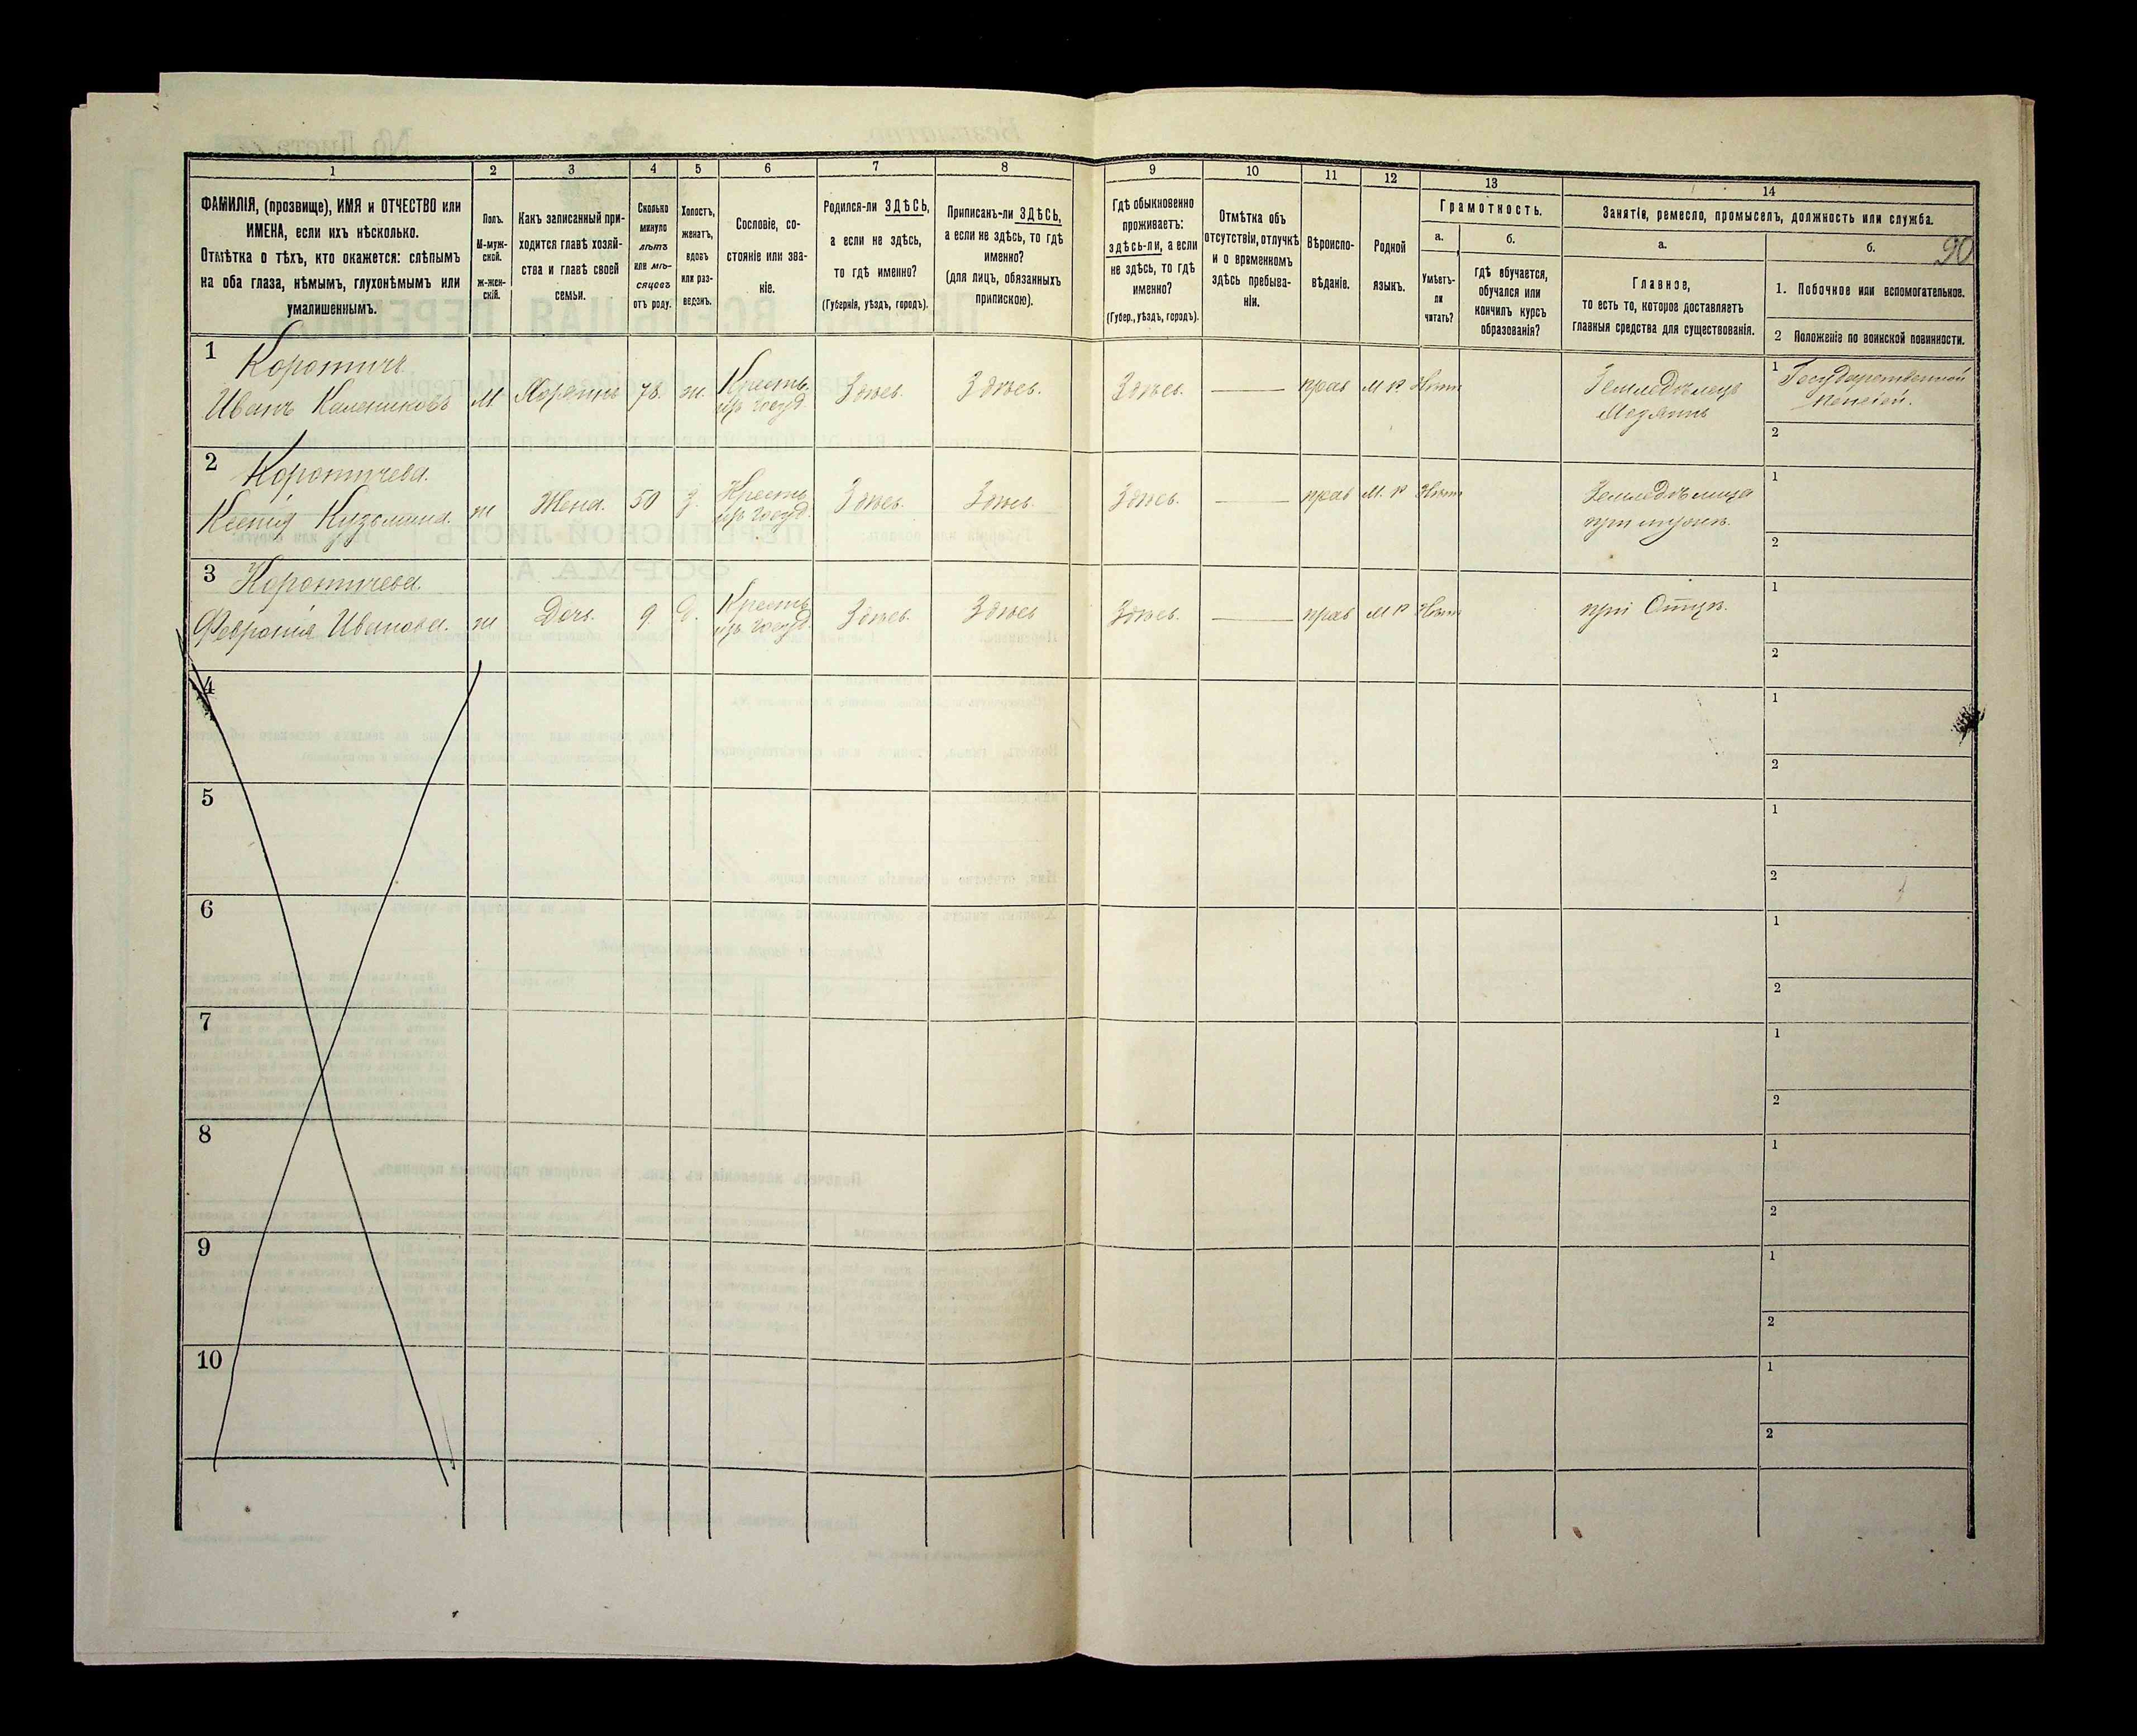 1 2 3 4 5 6 7 8 9 10 11 12 13 14
ФАМИЛІЯ, (прозвище), ИМЯ и ОТЧЕСТВО или
ИМЕНА, если ихъ нѣсколько.
Отмѣтка о тѣхъ, кто окажется: слѣпымъ
на оба глаза, нѣмымъ, глухонѣмымъ или
умалишеннымъ.
Полъ.
М-муж-
ской.
ж-жен-
скій.
Какъ записанный при-
ходится главѣ хозяй-
ства и главѣ своей
семьи.
Сколько
минуло
лѣтъ
или мѣ-
сяцевъ
отъ роду.
Холостъ,
женатъ,
вдовъ
или раз-
веденъ.
Сословіе, со-
стояніе или зва-
ніе.
Родился-ли ЗДѢСЬ,
а если не здѣсь,
то гдѣ именно?
(Губернія, уѣздъ, городъ).
Приписанъ-ли ЗДѢСЬ,
а если не здѣсь, то гдѣ
именно?
(для лицъ, обязанныхъ
припискою).
Гдѣ обыкновенно
проживаетъ:
здѣсь-ли, а если
не здѣсь, то гдѣ
именно?
(Губер., уѣздъ, городъ).
Отмѣтка объ
отсутствіи, отлучкѣ
и о временномъ
здѣсь пребыва-
ніи.
Вѣроиспо-
вѣданіе.
Родной
языкъ.
Грамотность.
а.
Умѣетъ-
ли
читать?
б.
гдѣ обучается,
обучался или
кончилъ курсъ
образованія?
Занятіе, ремесло, промыселъ, должность или служба.
а.
Главное,
то есть то, которое доставляетъ
главныя средства для существованія.
б.
90
1. Побочное или вспомогательное.
2 Положеніе по воинской повинности.
1
Коротичъ
Иванъ Калениковъ
м
Хозяинъ
78.
ж.
Крестъ.
изъ госуд.
Здѣсь.
Здѣсь.
Здѣсь.
—
прав
М Р
Нѣтъ
Земледѣлецъ
Хозяинъ
1 Государственной
пенсіей.
2
2
Коротичева.
Ксенія Кузьмина.
ж
Жена.
50
з.
Крестъ
изъ госуд.
Здѣсь.
Здѣсь.
Здѣсь.
—
прав
М. Р
Нѣтъ
Земледѣлица
при мужѣ.
1
2
3
Коротичева
Февронія Иванова.
ж
Дочь.
9
д.
Крестъ
изъ госуд.
Здѣсь.
Здѣсь
Здѣсь.
—
прав
М Р
Нѣтъ
при Отцѣ.
1
2
4
1
2
5
1
2
6
1
2
7
1
2
8
1
2
9
1
2
10
1
2